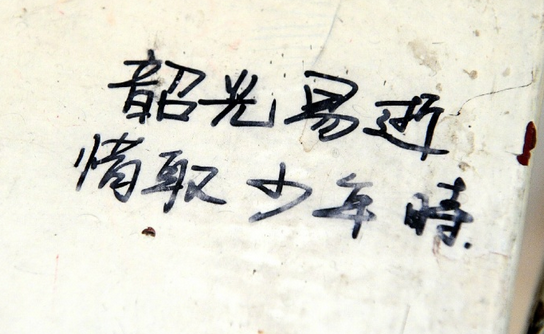 韶光易逝
惜取少年時